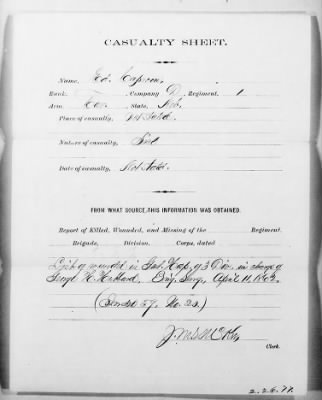 CASUALTY SHEET.
Name, Ed. Capron,
Rank, Company D, Regiment, 1
Arm, Cav. State, Neb.
Place of casualty, Not Stated
Nature of casualty,
Date of casualty, Not Stated.
FROM WHAT SOURCE THIS INFORMATION WAS OBTAINED.
Report of Killed, Wounded, and Missing of the Regiment,
Brigade, Division, Corps, dated
List of wounded in Hosp. of 3 Div. in charge of
H. Hubbard. Brig. Surg. April 11, 1862.
Clerk.
2.26.77.